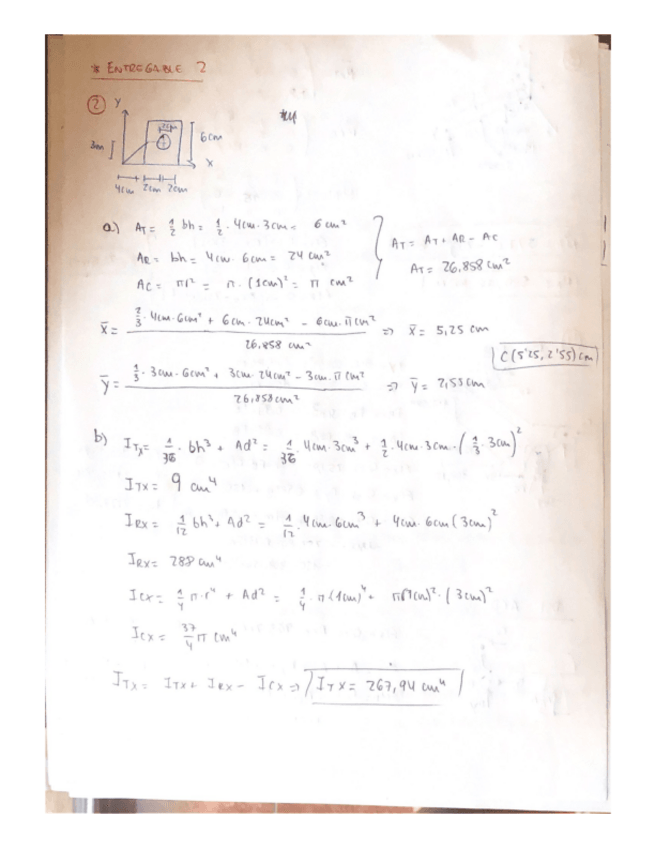 * ENTREGABLE 2
② Y
2cm
6cm
3m
X
4cm 2cm 2cm
a) AT = 1/2 bh = 1/2 · 4cm · 3cm = 6 cm²
AR = bh = 4cm · 6cm = 24 cm²
AC = πr² = π · (1cm)² = π cm²
AT = AT + AR - AC
AT = 26,858 cm²
x̄ = (2/3 · 4cm · 6cm² + 6cm · 24cm² - 6cm · π cm²) / 26,858 cm² => x̄ = 5,25 cm
C (5'25, 2'55) cm
ȳ = (1/3 · 3cm · 6cm² + 3cm · 24cm² - 3cm · π cm²) / 26,858 cm² => ȳ = 2,53 cm
b) ITX = 1/36 · bh³ + Ad² = 1/36 · 4cm · 3cm³ + 1/2 · 4cm · 3cm · (1/3 · 3cm)²
ITX = 9 cm⁴
IRX = 1/12 bh³ + Ad² = 1/12 · 4cm · 6cm³ + 4cm · 6cm (3cm)²
IRX = 288 cm⁴
ICX = 1/4 π · r⁴ + Ad² = 1/4 · π (1cm)⁴ + π (1cm)² · (3cm)²
ICX = 37/4 π cm⁴
ITX = ITX + IRX - ICX => ITX = 267,94 cm⁴